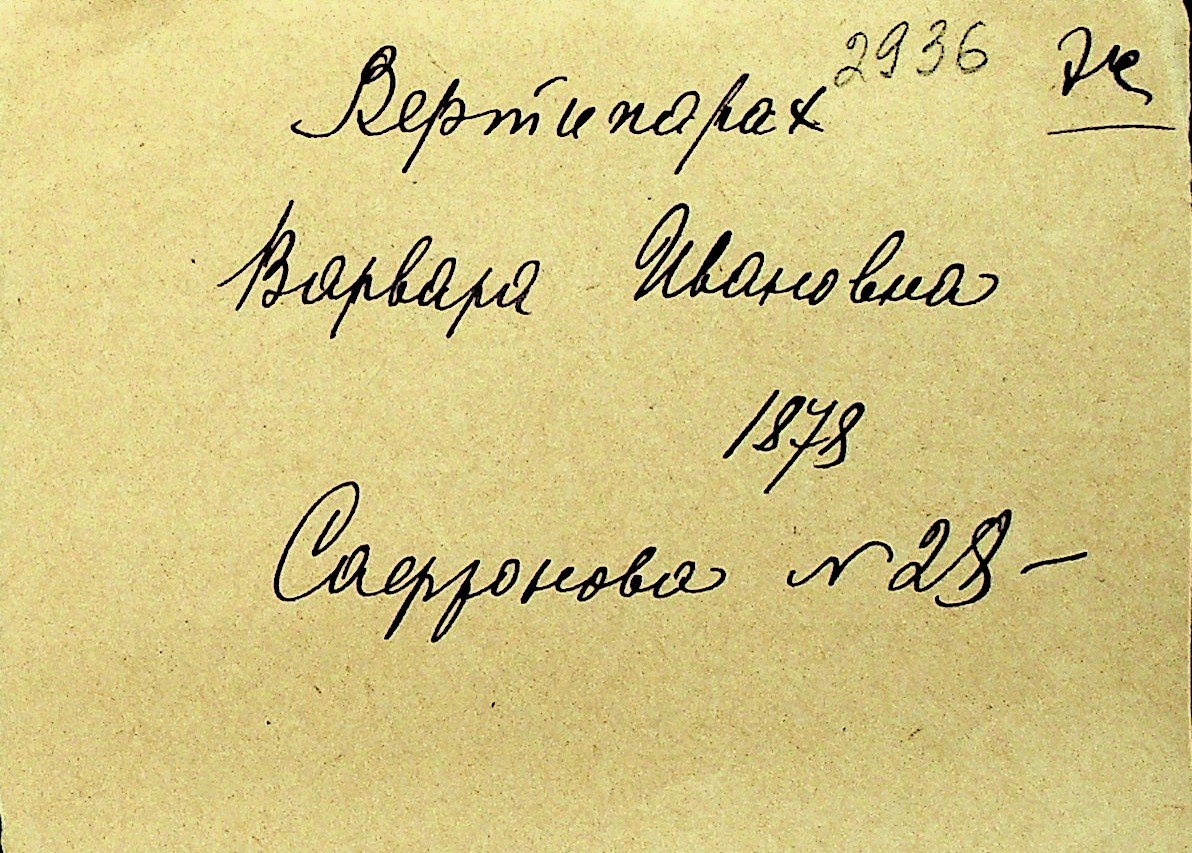 2936 Ж
Вертипарах
Варвара Ивановна
1878
Сафронова № 28 –